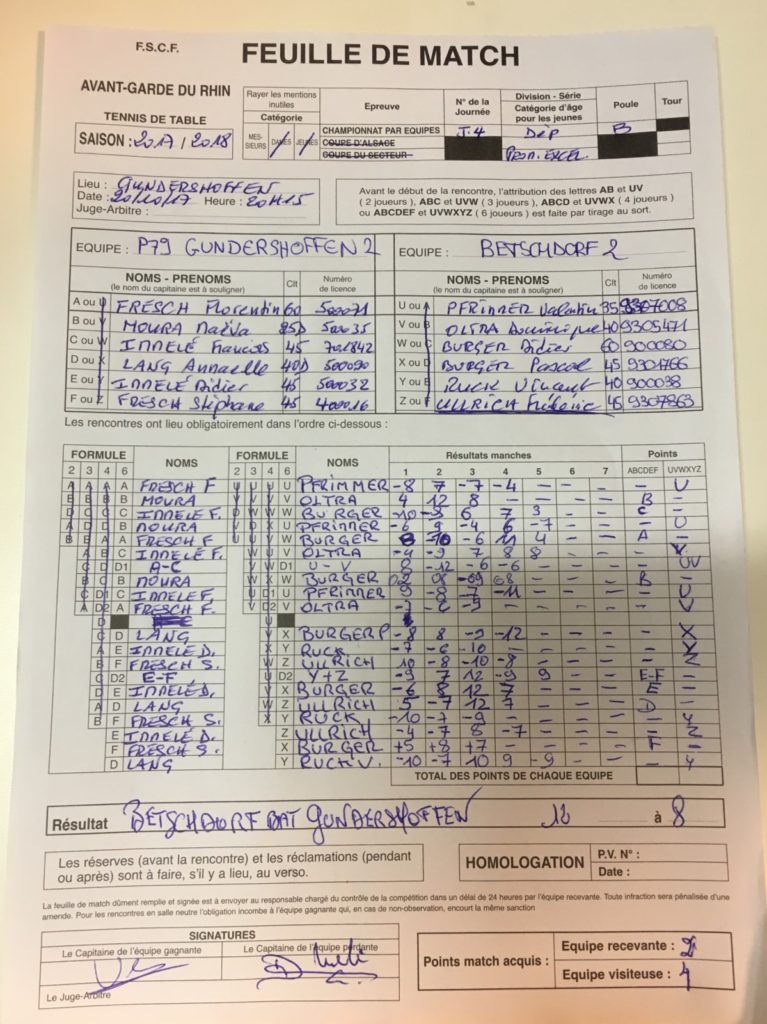 F.S.C.F.
FEUILLE DE MATCH
AVANT-GARDE DU RHIN
TENNIS DE TABLE
SAISON : 2017 / 2018
Rayer les mentions inutiles
Catégorie
MES-SIEURS DAMES JEUNES
Epreuve
CHAMPIONNAT PAR EQUIPES
COUPE D'ALSACE
COUPE DU SECTEUR
N° de la Journée
J.4
Division - Série
Catégorie d'âge pour les jeunes
DÉP
PROM. EXCEL.
Poule
B
Tour
Lieu : GUNDERSHOFFEN
Date : 20/10/17 Heure : 20H15
Juge-Arbitre :
Avant le début de la rencontre, l'attribution des lettres AB et UV
( 2 joueurs ), ABC et UVW ( 3 joueurs ), ABCD et UVWX ( 4 joueurs )
ou ABCDEF et UVWXYZ ( 6 joueurs ) est faite par tirage au sort.
EQUIPE : P79 GUNDERSHOFFEN 2
NOMS - PRENOMS Clt Numéro de licence
(le nom du capitaine est à souligner)
A ou U FRESCH Florentin 60 500071
B ou V MOURA Naëva 85D 500035
C ou W IMMELÉ François 45 701842
D ou X LANG Annaelle 40D 500090
E ou Y IMMELÉ Didier 45 500032
F ou Z FRESCH Stéphane 45 400016
EQUIPE : BETSCHDORF 2
NOMS - PRENOMS Clt Numéro de licence
(le nom du capitaine est à souligner)
U ou A PFRIMMER Valentin 35 9307008
V ou B OLTRA Dominique 40 9305471
W ou C BURGER Didier 60 900080
X ou D BURGER Pascal 45 9301766
Y ou E RUCK Vincent 40 900098
Z ou F ULLRICH Frédéric 45 9307863
Les rencontres ont lieu obligatoirement dans l'ordre ci-dessous :
FORMULE NOMS FORMULE NOMS Résultats manches Points
2 3 4 6 2 3 4 6 1 2 3 4 5 6 7 ABCDEF UVWXYZ
A FRESCH F U PFRIMMER -8 7 -7 -4 - - - - U
B MOURA V OLTRA 4 12 8 - - - - B -
C IMMELE F. W BURGER -10 -9 6 7 3 - - C -
B MOURA U PFRIMMER -6 9 -4 6 -7 - - - U
A FRESCH F W BURGER 8 -10 -6 11 4 - - A -
C IMMELE F. V OLTRA -4 -9 7 8 8 - - - V
D1 A-C D1 U-V 8 -12 -6 -6 - - - - UV
B MOURA W BURGER 02 08 -09 08 - - - B -
C IMMELE F U PFRIMER 9 -8 -7 -11 - - - - U
A FRESCH F. V OLTRA -7 -6 -9 - - - - - V
D LANG X BURGER P -8 8 -9 -12 - - - - X
E IMMELE D. Y RUCK -7 -6 -10 - - - - - Y
F FRESCH S. Z ULLRICH 10 -8 -10 -8 - - - - Z
D2 E-F D2 Y+Z -9 7 12 -9 9 - - E-F -
E IMMELE D. X BURGER -6 8 12 7 - - - E -
D LANG Z ULLRICH 5 -7 12 7 - - - D -
F FRESCH S. Y RUCK -10 -7 -9 - - - - - Y
E IMMELE D. Z ULLRICH -4 -7 8 -7 - - - - Z
F FRESCH S. X BURGER +5 +8 +7 - - - - F -
D LANG Y RUCK V. -10 -7 10 9 -9 - - - Y
TOTAL DES POINTS DE CHAQUE EQUIPE
Résultat BETSCHDORF BAT GUNDERSHOFFEN 12 à 8
Les réserves (avant la rencontre) et les réclamations (pendant
ou après) sont à faire, s'il y a lieu, au verso.
HOMOLOGATION
P.V. N° :
Date :
La feuille de match dûment remplie et signée est à envoyer au responsable chargé du contrôle de la compétition dans un délai de 24 heures par l'équipe recevante. Toute infraction sera pénalisée d'une
amende. Pour les rencontres en salle neutre l'obligation incombe à l'équipe gagnante qui, en cas de non-observation, encourt la même sanction
SIGNATURES
Le Capitaine de l'équipe gagnante
Le Capitaine de l'équipe perdante
Le Juge-Arbitre
Points match acquis :
Equipe recevante : 2
Equipe visiteuse : 4